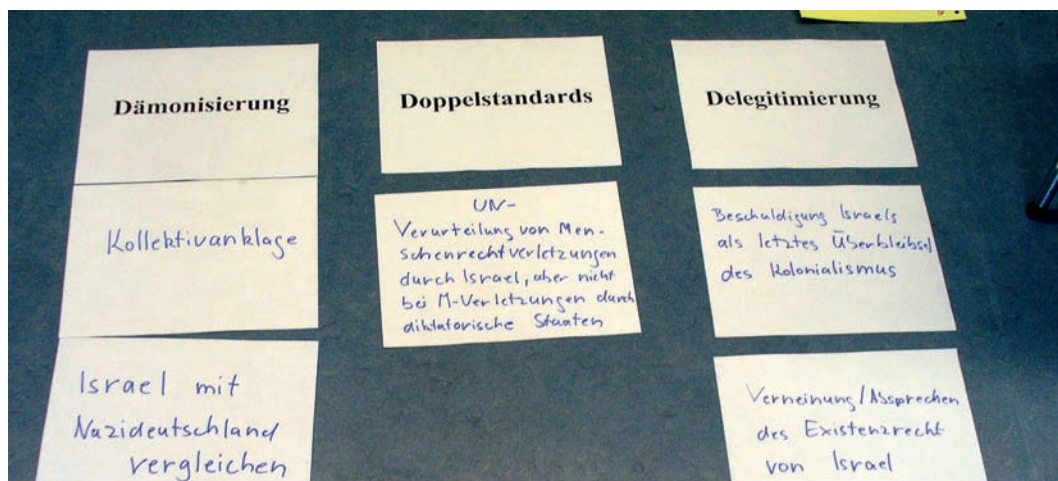 Dämonisierung
Kollektivanklage
Israel mit
Nazideutschland
vergleichen
Doppelstandards
UN-
Verurteilung von Men-
schenrechtverletzungen
durch Israel, aber nicht
bei M-Verletzungen durch
diktatorische Staaten
Delegitimierung
Beschuldigung Israels
als letztes Überbleibsel
des Kolonialismus
Verneinung/Absprechen
des Existenzrecht
von Israel